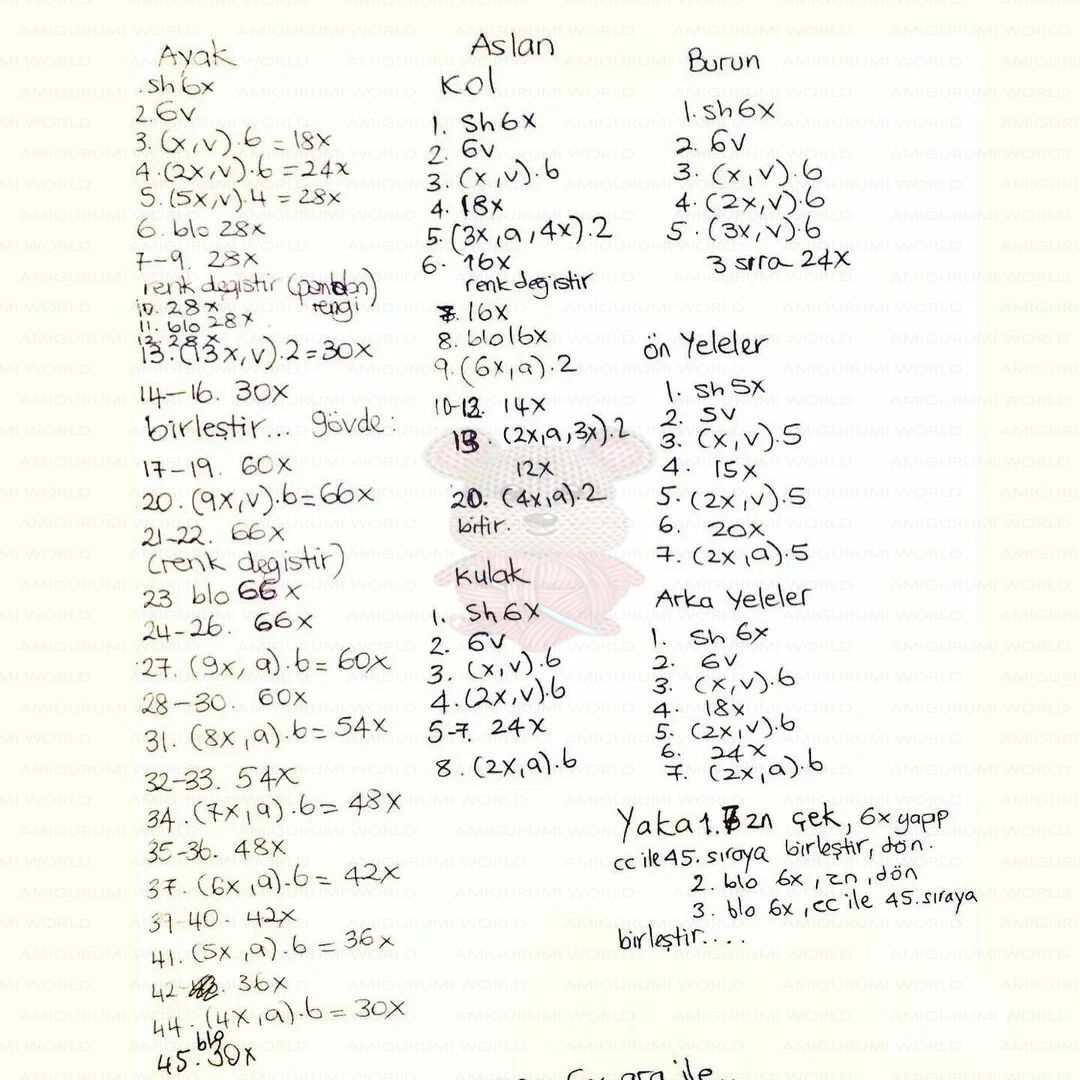 Aslan
Ayak
.sh 6x
2. 6v
3. (x,v).6 = 18x
4. (2x,v).6 = 24x
5. (5x,v).4 = 28x
6. blo 28x
7-9. 28x
renk degistir (pantolon rengi)
10. 28x
11. blo 28x
12. 28x
13. (13x,v).2 = 30x
14-16. 30x
birleştir... gövde:
17-19. 60x
20. (9x,v).6 = 66x
21-22. 66x
(renk degistir)
23 blo 66x
24-26. 66x
27. (9x, a).6 = 60x
28-30. 60x
31. (8x,a).6 = 54x
32-33. 54x
34. (7x,a).6 = 48x
35-36. 48x
37. (6x,a).6 = 42x
39-40. 42x
41. (5x,a).6 = 36x
42- . 36x
44. (4x,a).6 = 30x
45. blo 30x
Kol
1. Sh 6x
2. 6v
3. (x,v).6
4. 18x
5. (3x,a,4x).2
6. 16x
renk degistir
7. 16x
8. blo 16x
9. (6x,a).2
10-12. 14x
13. (2x,a,3x).2
12x
20. (4x,a).2
bitir.
Kulak
1. Sh 6x
2. 6v
3. (x,v).6
4. (2x,v).6
5-7. 24x
8. (2x,a).6
Burun
1. sh 6x
2. 6v
3. (x,v).6
4. (2x,v).6
5. (3x,v).6
3 sıra 24x
ön Yeleler
1. sh 5x
2. 5v
3. (x,v).5
4. 15x
5. (2x,v).5
6. 20x
7. (2x,a).5
Arka Yeleler
1. sh 6x
2. 6v
3. (x,v).6
4. 18x
5. (2x,v).6
6. 24x
7. (2x,a).6
Yaka 1. 7 zn çek, 6x yapıp
cc ile 45. sıraya birleştir, dön.
2. blo 6x, zn, dön
3. blo 6x, cc ile 45. sıraya
birleştir....
AMIGURUMI WORLD